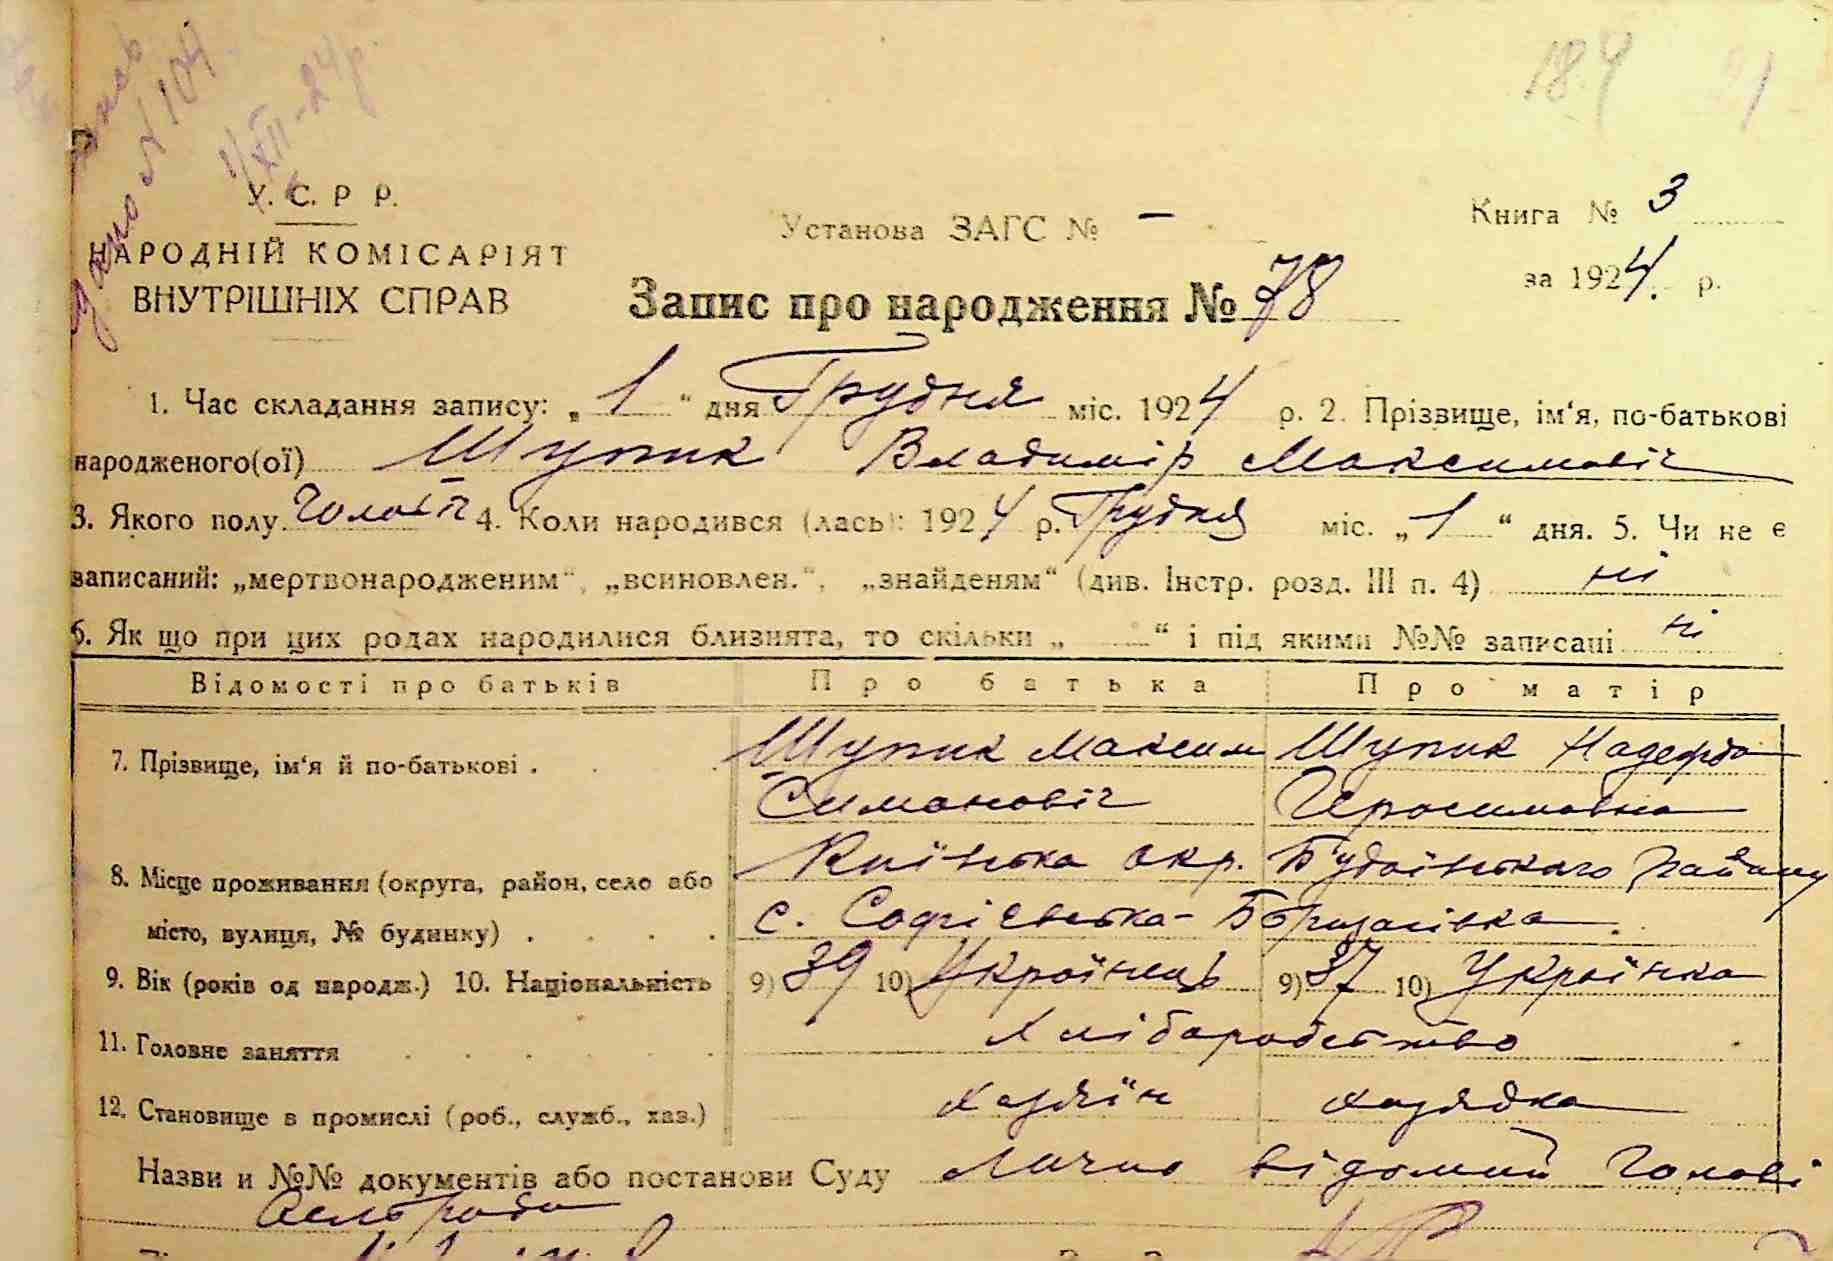 184 21
видано № 104
1/XII-24 р.
У. С. Р Р.
НАРОДНІЙ КОМІСАРІЯТ
ВНУТРІШНІХ СПРАВ
Установа ЗАГС № —
Книга № 3
за 1924. р.
Запис про народження № 78
1. Час складання запису: „1“ дня Грудня міс. 1924 р. 2. Прізвище, ім‘я, по-батькові
народженого(ої) Шупик Владимір Максимовіч
3. Якого полу чолов. 4. Коли народився (лась): 1924 р. Грудня міс. „1“ дня. 5. Чи не є
записаний: „мертвонародженим“, „всиновлен.“, „знайденям“ (див. Інстр. розд. III п. 4) ні
6. Як що при цих родах народилися близнята, то скільки „ “ і під якими №№ записані ні
Відомості про батьків Про батька Про матір
7. Прізвище, ім‘я й по-батькові . Шупик Максим Шупик Надефда
Симоновіч Герасимовна
8. Місце проживання (округа, район, село або Київська окр. Будаївського району
місто, вулиця, № будинку) . с. Софієвська-Борщагівка.
9. Вік (років од народж.) 10. Національність 9) 39 10) Українець 9) 37 10) Українка
11. Головне заняття Хліборобство
12. Становище в промислі (роб., служб., хаз.) хазяїн хазяйка
Назви и №№ документів або постанови Суду Лично відомий Голові
Сельради